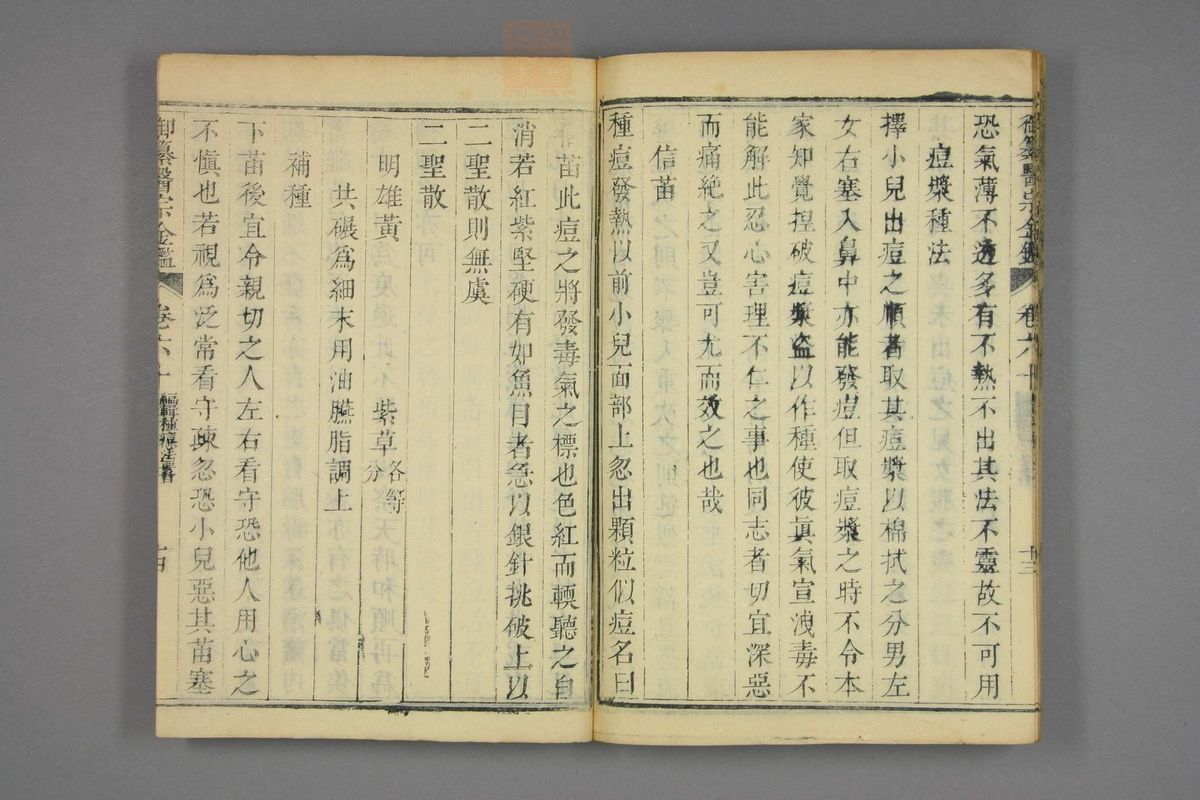 御纂醫宗金鑑 卷六十 十三
恐氣薄不透多有不熱不出其法不靈故不可用
痘漿種法
擇小兒出痘之順者取其痘漿以棉拭之分男左
女右塞入鼻中亦能發痘但取痘漿之時不令本
家知覺揑破痘漿盜以作種使彼眞氣宣洩毒不
能解此忍心害理不仁之事也同志者切宜深惡
而痛絶之又豈可尤而效之也哉
信苗
種痘發熱以前小兒面部上忽出顆粒似痘名曰
苗此痘之將發毒氣之標也色紅而輭聽之自
消若紅紫堅硬有如魚目者急以銀針挑破上以
二聖散則無虞
二聖散
明雄黃 紫草各等分
共碾爲細末用油臙脂調上
補種
下苗後宜令親切之人左右看守恐他人用心之
不愼也若視爲泛常看守疎忽恐小兒惡其苗塞
御纂醫宗金鑑 卷六十 編輯種痘 十四